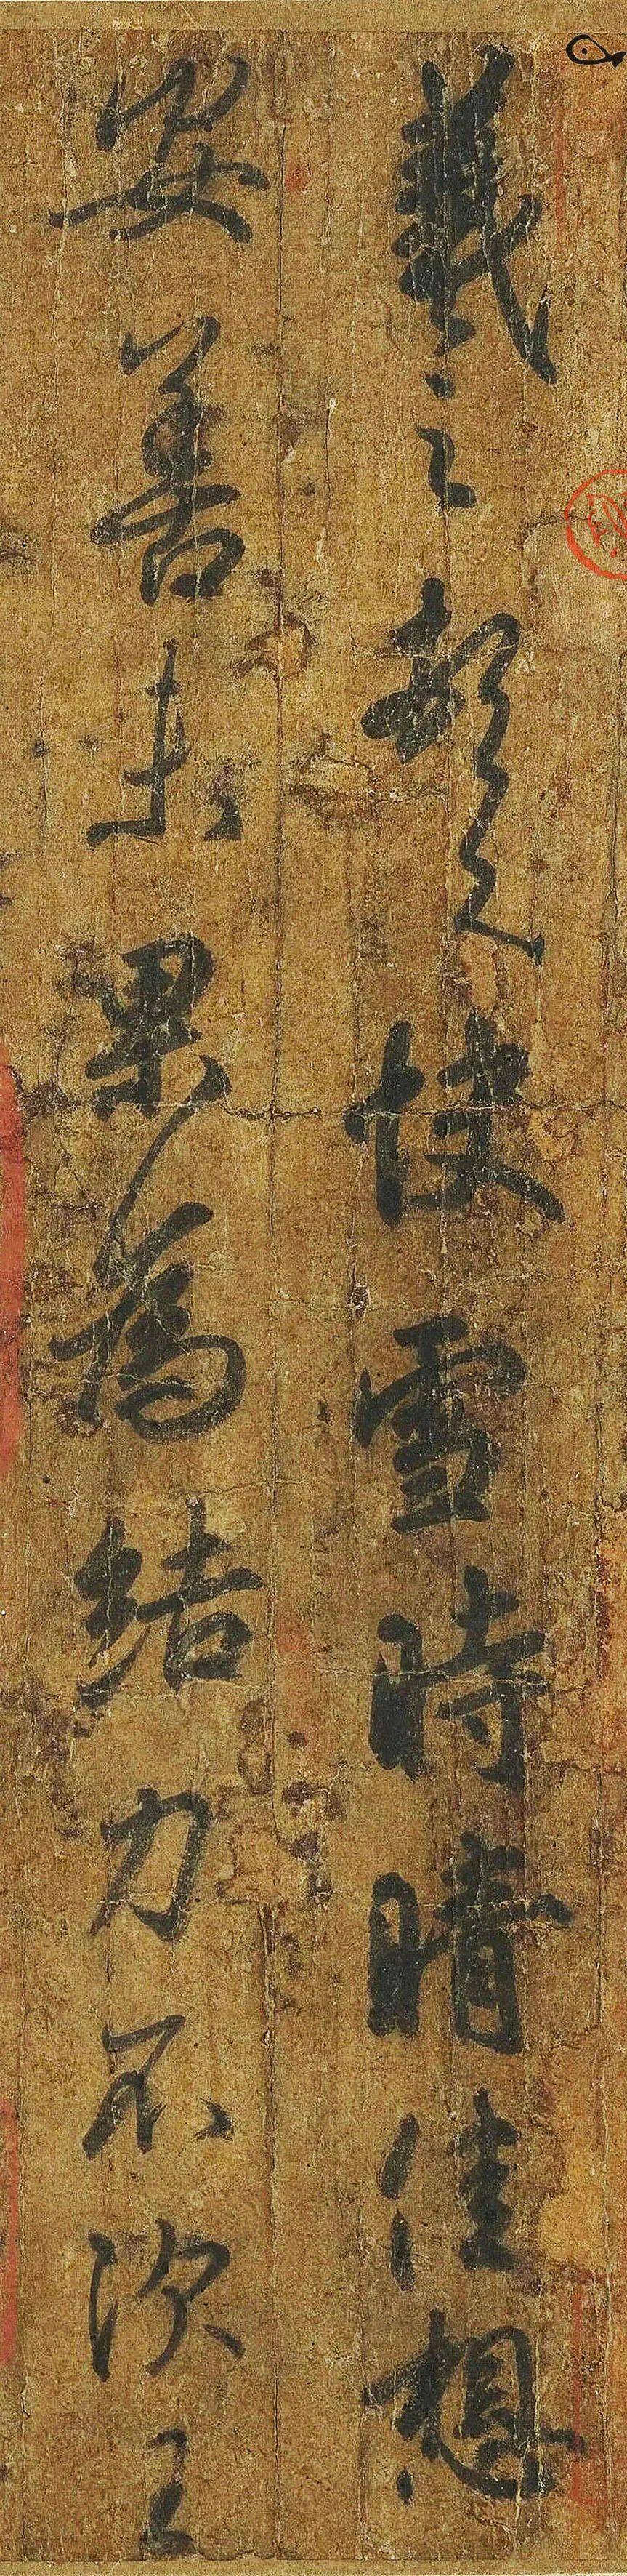 羲之頓首快雪時晴佳想
安善未果為結力不次王